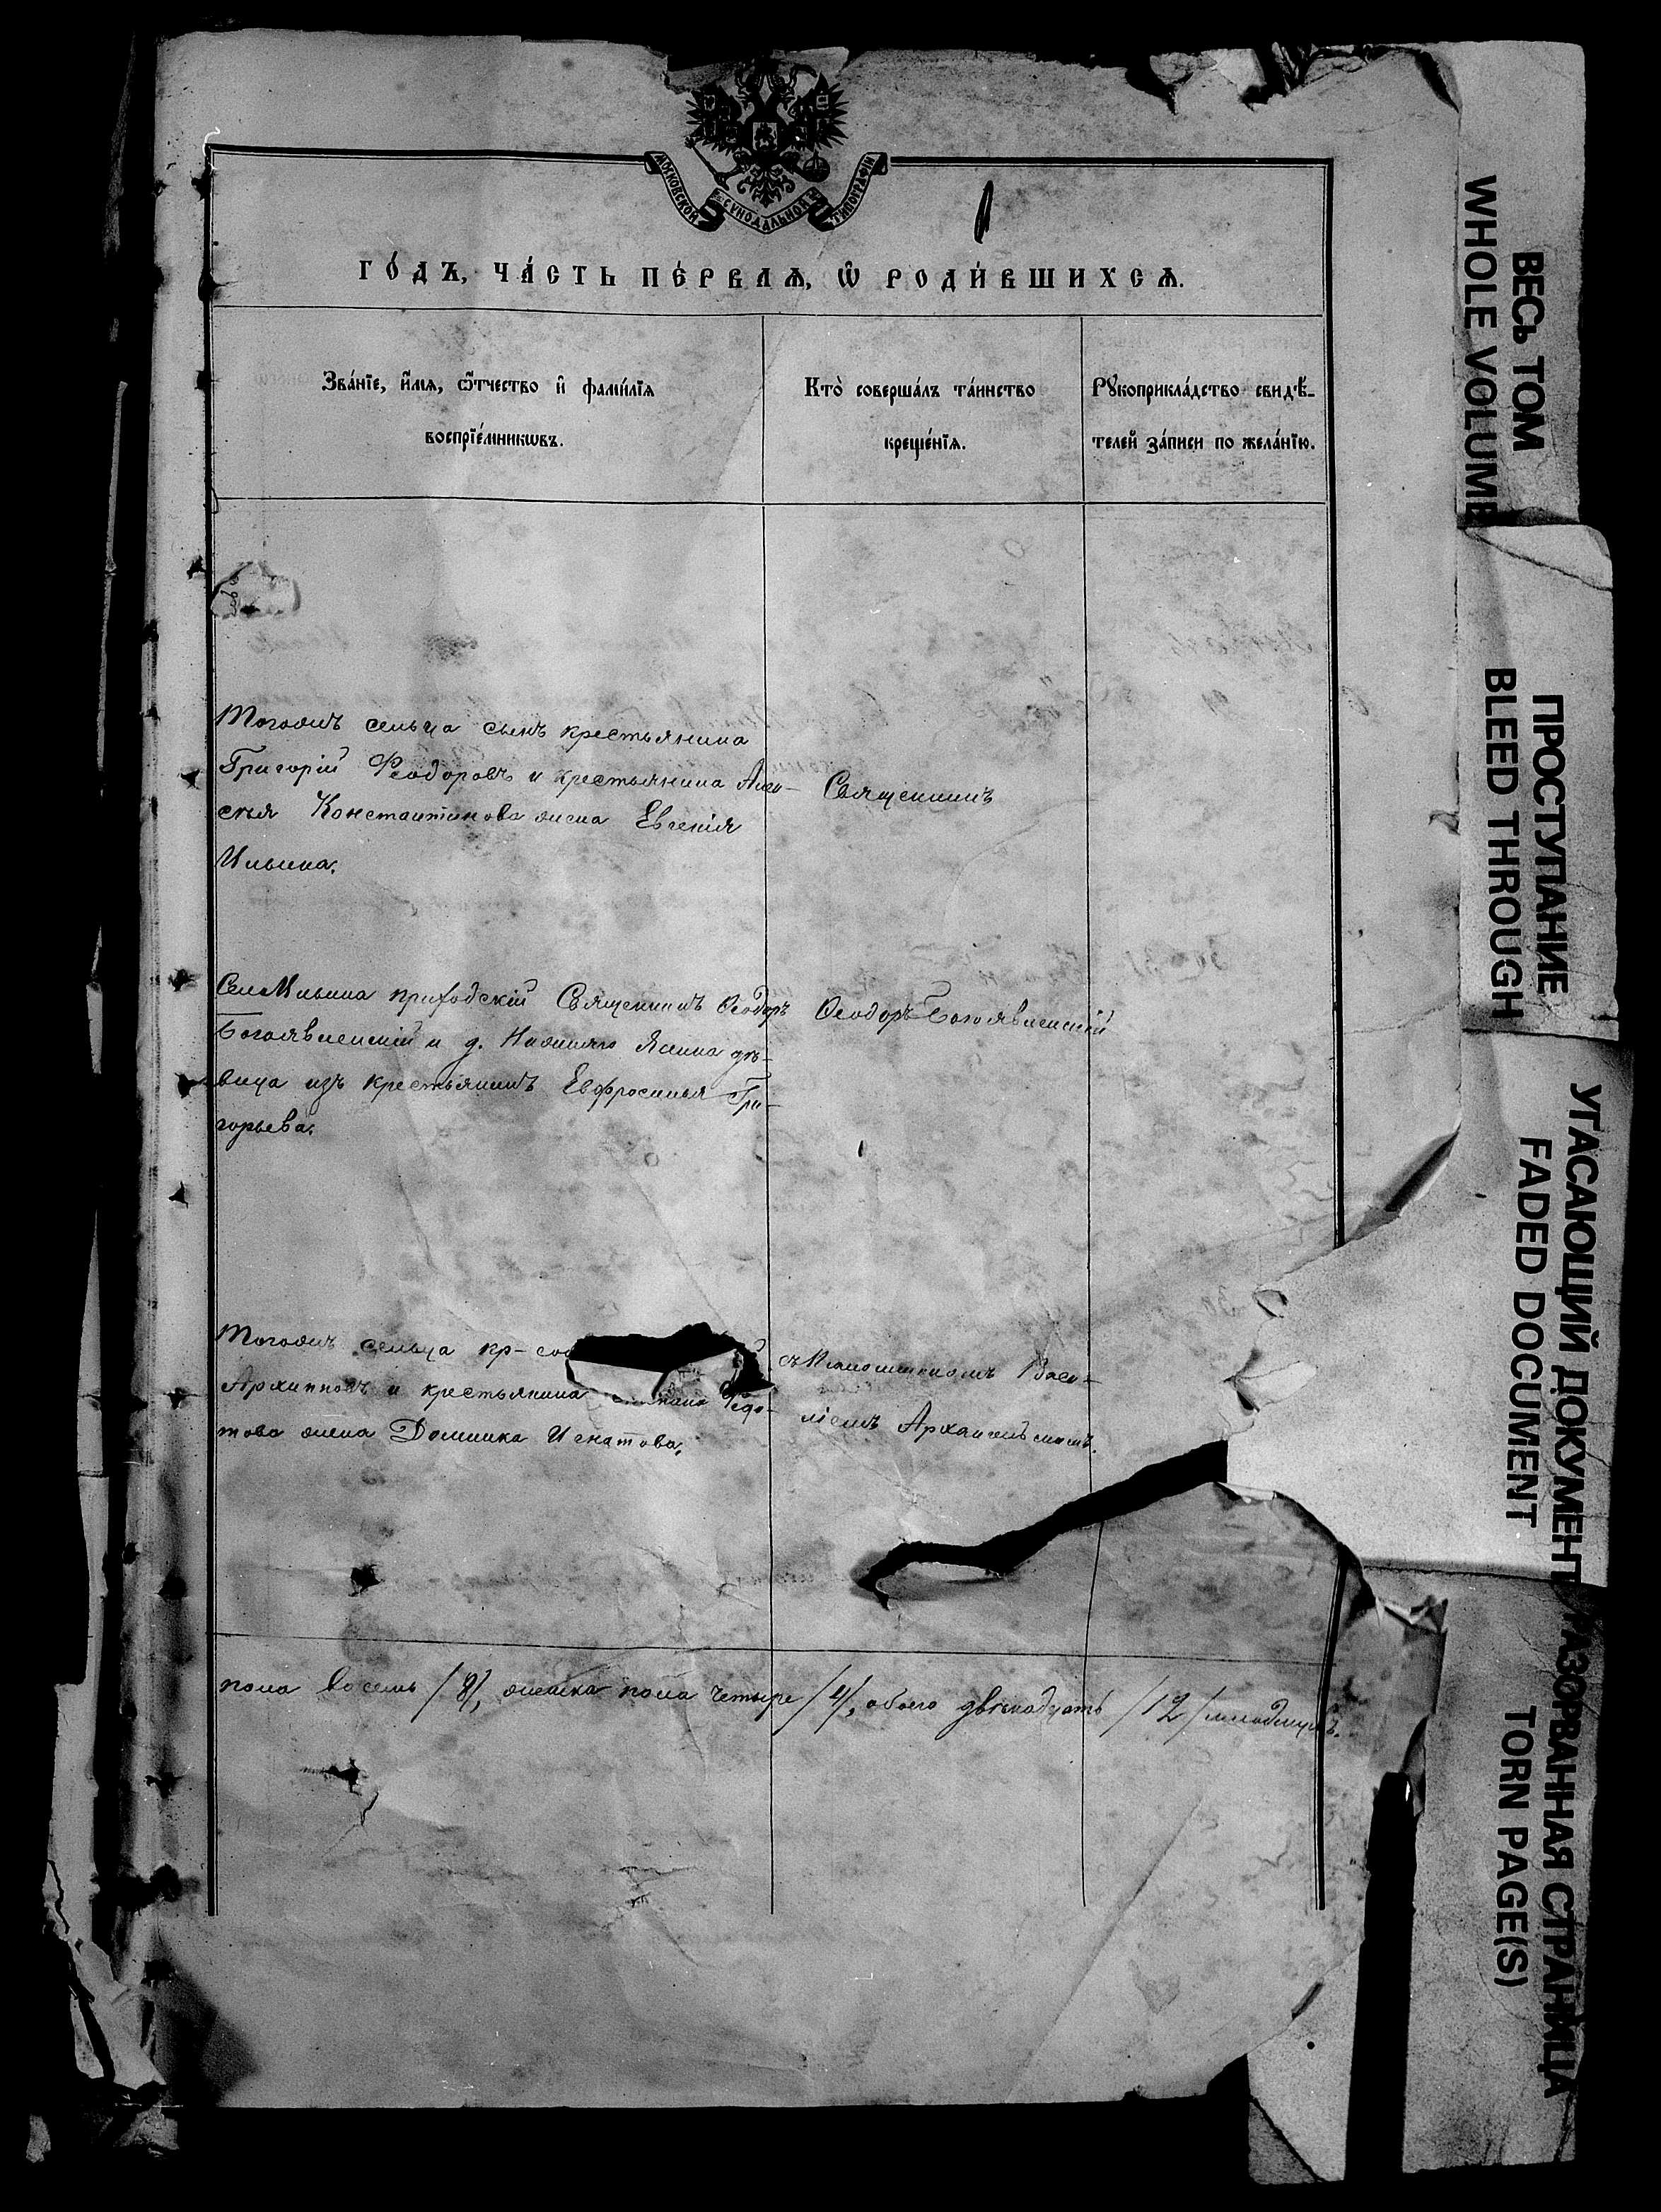 МОСКОВСКОЙ СѴНОДАЛЬНОЙ ТИПОГРАФІИ
ГО́ДЪ, ЧА́СТЬ ПЕ́РВАѦ, Ѿ РОДИ́ВШИХСѦ.
Зва́нїе, и҆́мѧ, ѻ҆́тчество и҆ фами́лїѧ
воспрїе́мникѡвъ.
Кто̀ соверша́лъ та́инство
креще́нїѧ.
Рꙋкоприкла́дство свидѣ́-
телей за́писи по жела́нїю.
Тогожъ сельца сынъ крестьянина
Григорій Ѳеодоровъ и крестьянина Алек-
сѣя Константинова жена Евгенія
Ильина.
Священникъ
Села Ильина приходскій Священникъ Ѳеодоръ
Богоявленскій и д. дѣ-
вица изъ крестьянъ Евфросинья Гри-
горьева.
Ѳеодоръ Богоявленскій
Тогожъ сельца кр-
Архиповъ и крестьянина Ѳедо-
това жена Домника Игнатова.
съ Псаломщикомъ Васи-
ліемъ Архангельскимъ.
пола восемь /8/, женска пола четыре /4/, обоего двѣнадцать /12/ младенцевъ.
ВЕСЬ ТОМ
WHOLE VOLUME
ПРОСТУПАНИЕ
BLEED THROUGH
УГАСАЮЩИЙ ДОКУМЕНТ
FADED DOCUMENT
РАЗОРВАННАЯ СТРАНИЦА
TORN PAGE(S)